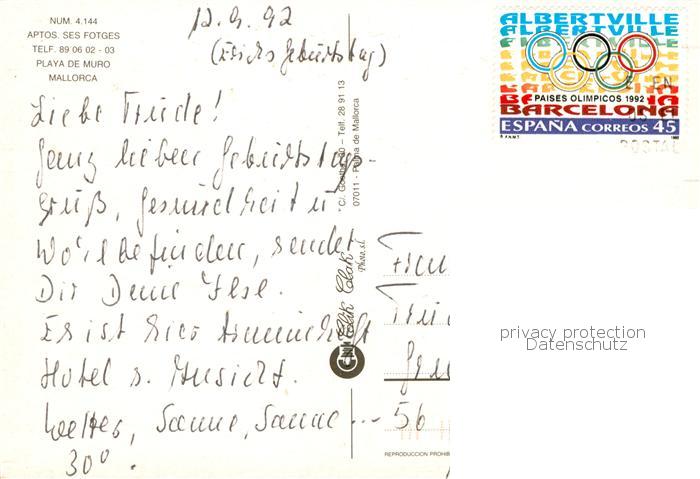 NUM. 4.144
APTOS. SES FOTGES
TELF. 89 06 02 - 03
PLAYA DE MURO
MALLORCA
12.9.92
(Erichs Geburtstag)
Liebe Trude!
Ganz lieben Geburtstags-
gruß, Gesundheit u.
Wohlbefinden, sendet
Dir Deine Ilse.
Es ist hier traumhaft
Hotel s. Ansicht.
Wetter, Sonne, Sonne ...
30°.
07011 - Palma de Mallorca
Clik Clak
Photo, s.l.
Frau
Trud
56
REPRODUCCION PROHIB
ALBERTVILLE
PAISES OLIMPICOS 1992
BARCELONA
ESPAÑA CORREOS 45
POSTAL
privacy protection
Datenschutz